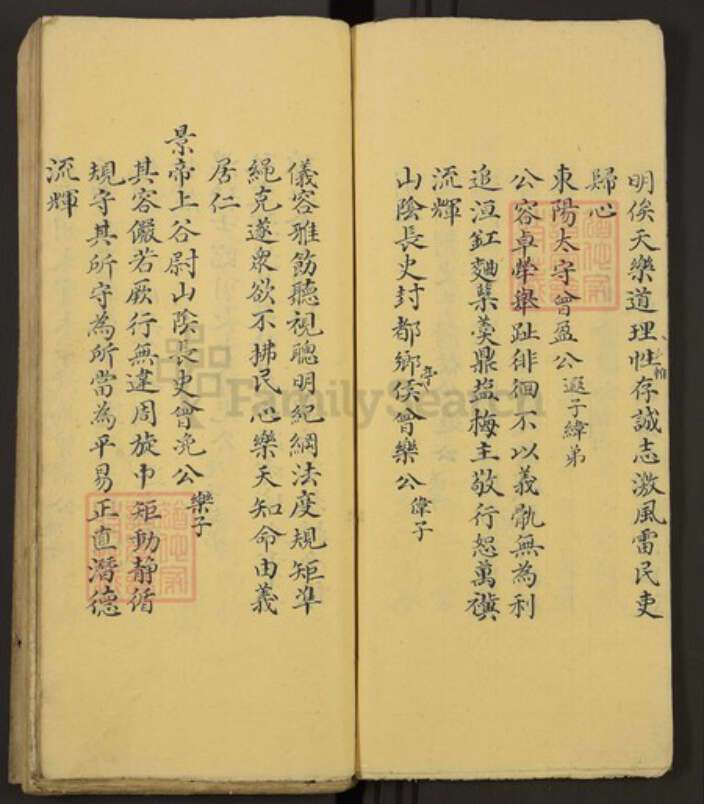 明俟天樂道理性存誠志激風雷民吏
歸心
東陽太守曾盈公遐子緯弟
公容卓犖舉趾徘徊不以義骩無為利
追洹釭麯糵羮鼎塩梅主敬行恕萬禩
流輝
山陰長史封都鄉亭侯曾樂公偉子
儀容雅飭聽視聰明紀綱法度規矩準
繩克遂衆欲不拂民心樂天知命由義
居仁
景帝上谷尉山陰長史曾浼公樂子
其容儼若厥行無違周旋巾矩動靜循
規守其所守為所當為平易正直潛德
流輝
FamilySearch